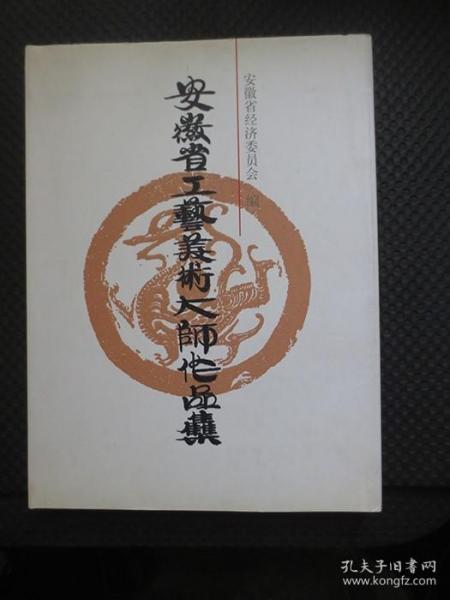 安徽省经济委员会 编
安徽省工藝美術大師作品集
孔夫子旧书网
www.kongfz.com